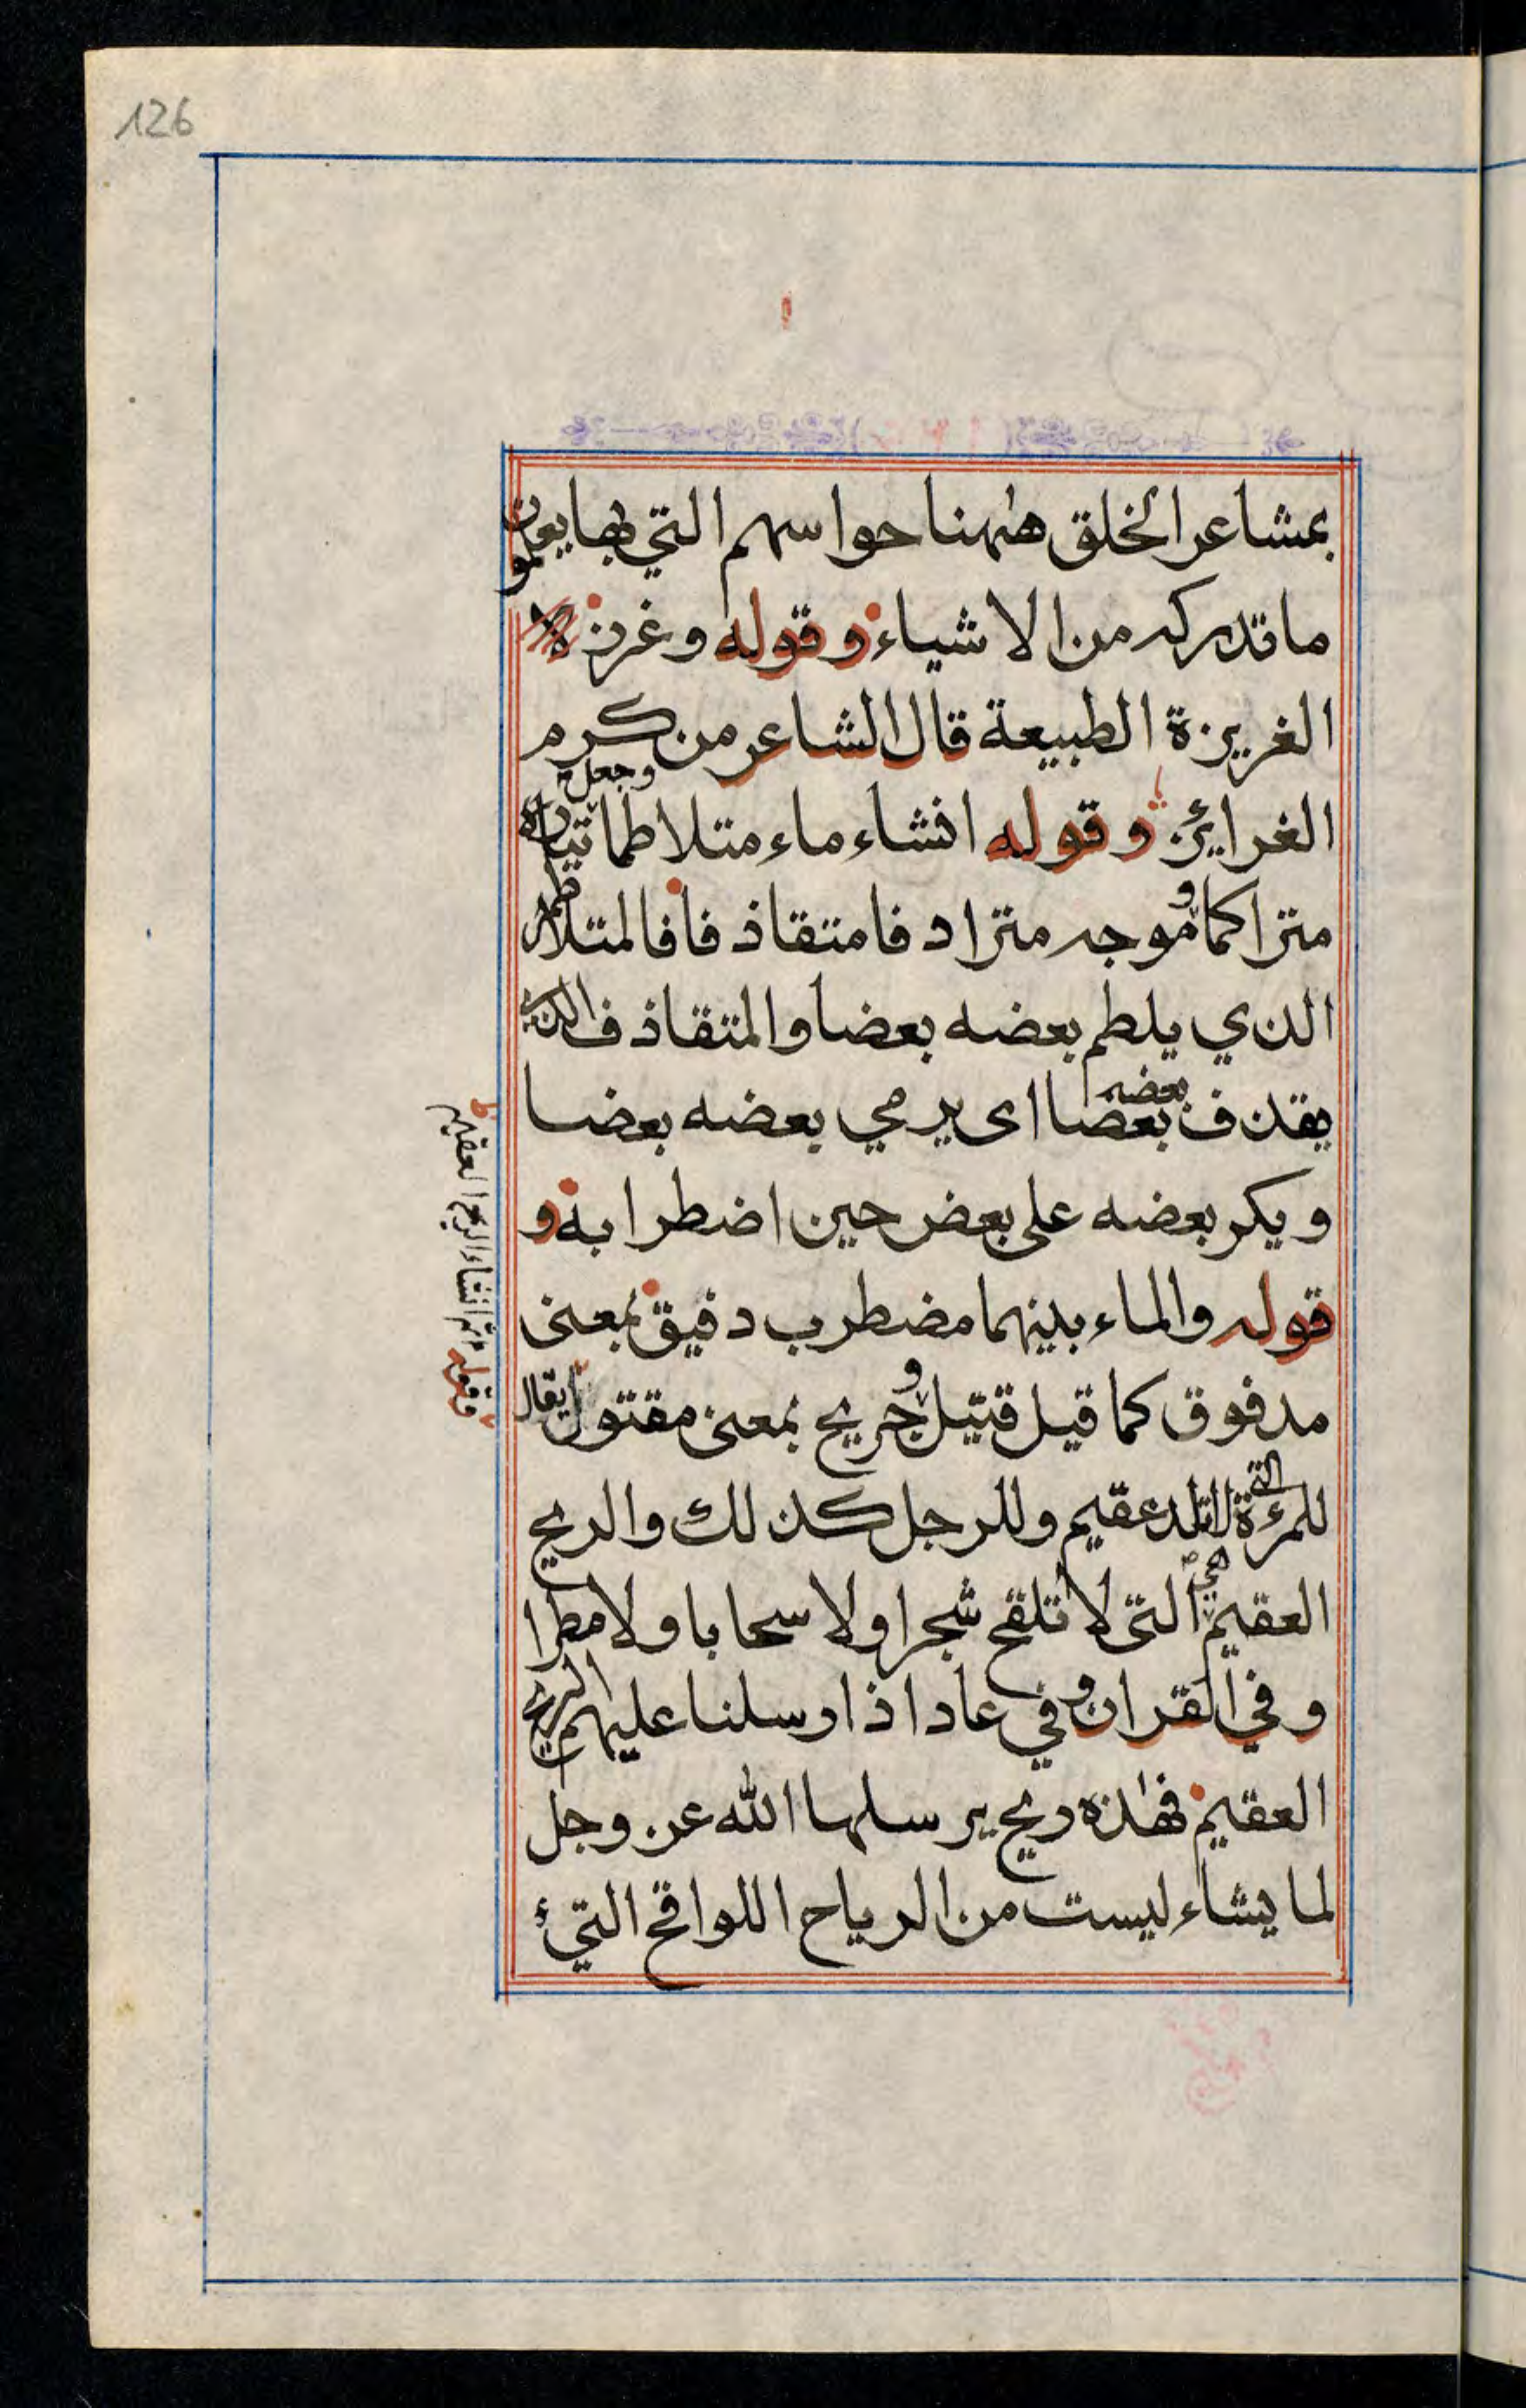 126
بمشاعر الخلق هٰهنا حواسهم التي بها يعلمون
ما تدركه من الاشياء وقوله وغرز
الغريزة الطبيعة قال الشاعر من كرم
الغرائز وقوله انشاء ماء متلاطما تياره وجعل
متراكما وموجه مترادفا متقاذفا فالمتلاطم
الذي يلطم بعضه بعضا والمتقاذف الذي
يقذف بعضه بعضا اى يرمي بعضه بعضا
ويكر بعضه على بعض حين اضطرابه و
قوله والماء بينهما مضطرب دفيق بمعنى
مدفوق كما قيل قتيل وجريح بمعنى مقتول يقال
للمرءة التي لا تلد عقيم وللرجل كذلك والريح
العقيم هي التى لا تلقح شجرا ولا سحابا ولا مطرا
وفي القران وفي عاد اذ ارسلنا عليهم الريح
العقيم فهٰذه ريح يرسلها الله عز وجل
لما يشاء ليست من الرياح اللواقح التي
وقوله ثم انشاء الريح العقيم